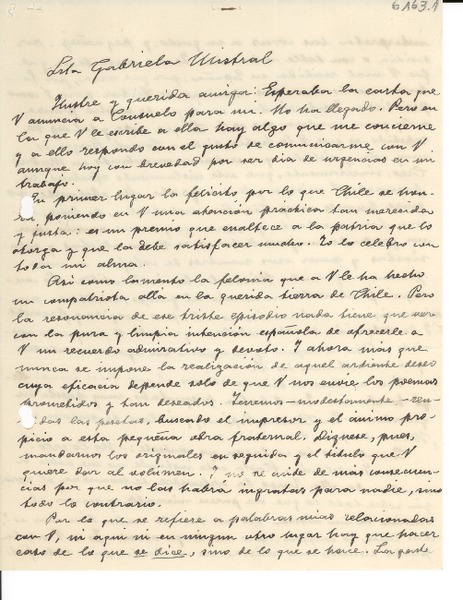 6163.1
Srta Gabriela Mistral
Ilustre y querida amiga: Esperaba la carta que
V anuncia a Consuelo para mi. No ha llegado. Pero en
la que V le escribe a ella hay algo que me concierne
y a ello respondo con el gusto de comunicarme con V
aunque hoy con brevedad por ser dia de urgencias en mi
trabajo.
En primer lugar la felicito por lo que Chile se hon-
ra poniendo en V una atención práctica tan merecida
y justa: es un premio que enaltece a la patria que lo
otorga y que la debe satisfacer mucho. Yo lo celebro con
toda mi alma.
Asi como lamento la felonia que a V le ha hecho
un compatriota allá en la querida tierra de Chile. Pero
la resonancia de ese triste episodio nada tiene que ver
con la pura y limpia intención española de ofrecerle a
V un recuerdo admirativo y devoto. Y ahora más que
nunca se impone la realización de aquel ardiente deseo
cuya eficacia depende solo de que V nos envie los poemas
prometidos y tan deseados. Tenemos—modestamente,—reu-
nidas las pesetas, buscado el impresor y el ánimo pro-
picio a esta pequeña obra fraternal. Dígnese, pues,
mandarnos los originales en seguida y el titulo que V
quiere dar al volúmen. Y no se cuide de más consecuen-
cias por que no las habrá ingratas para nadie, sino
todo lo contrario.
Por lo que se refiere a palabras mias relacionadas
con V, ni aqui ni en ningun otro lugar hay que hacer
caso de lo que se dice, sino de lo que se hace. La gente